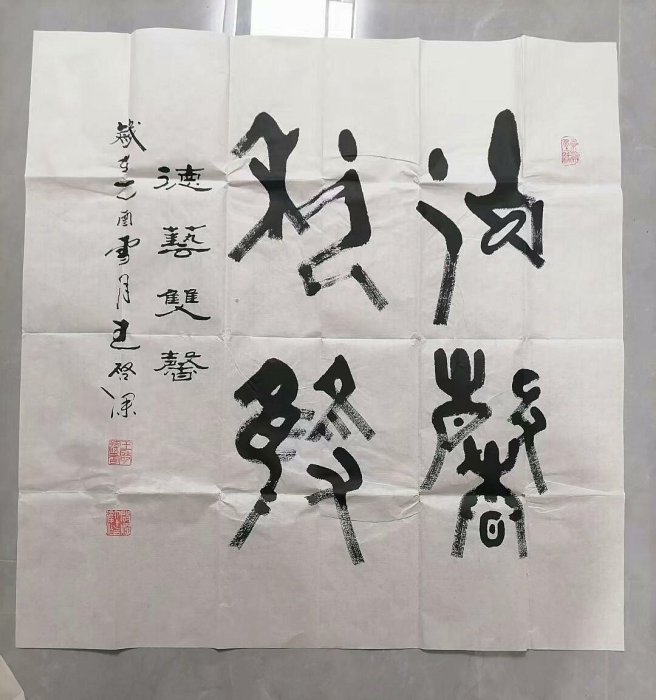 德藝
雙馨
德藝雙馨
歲在乙酉雪月王啓深